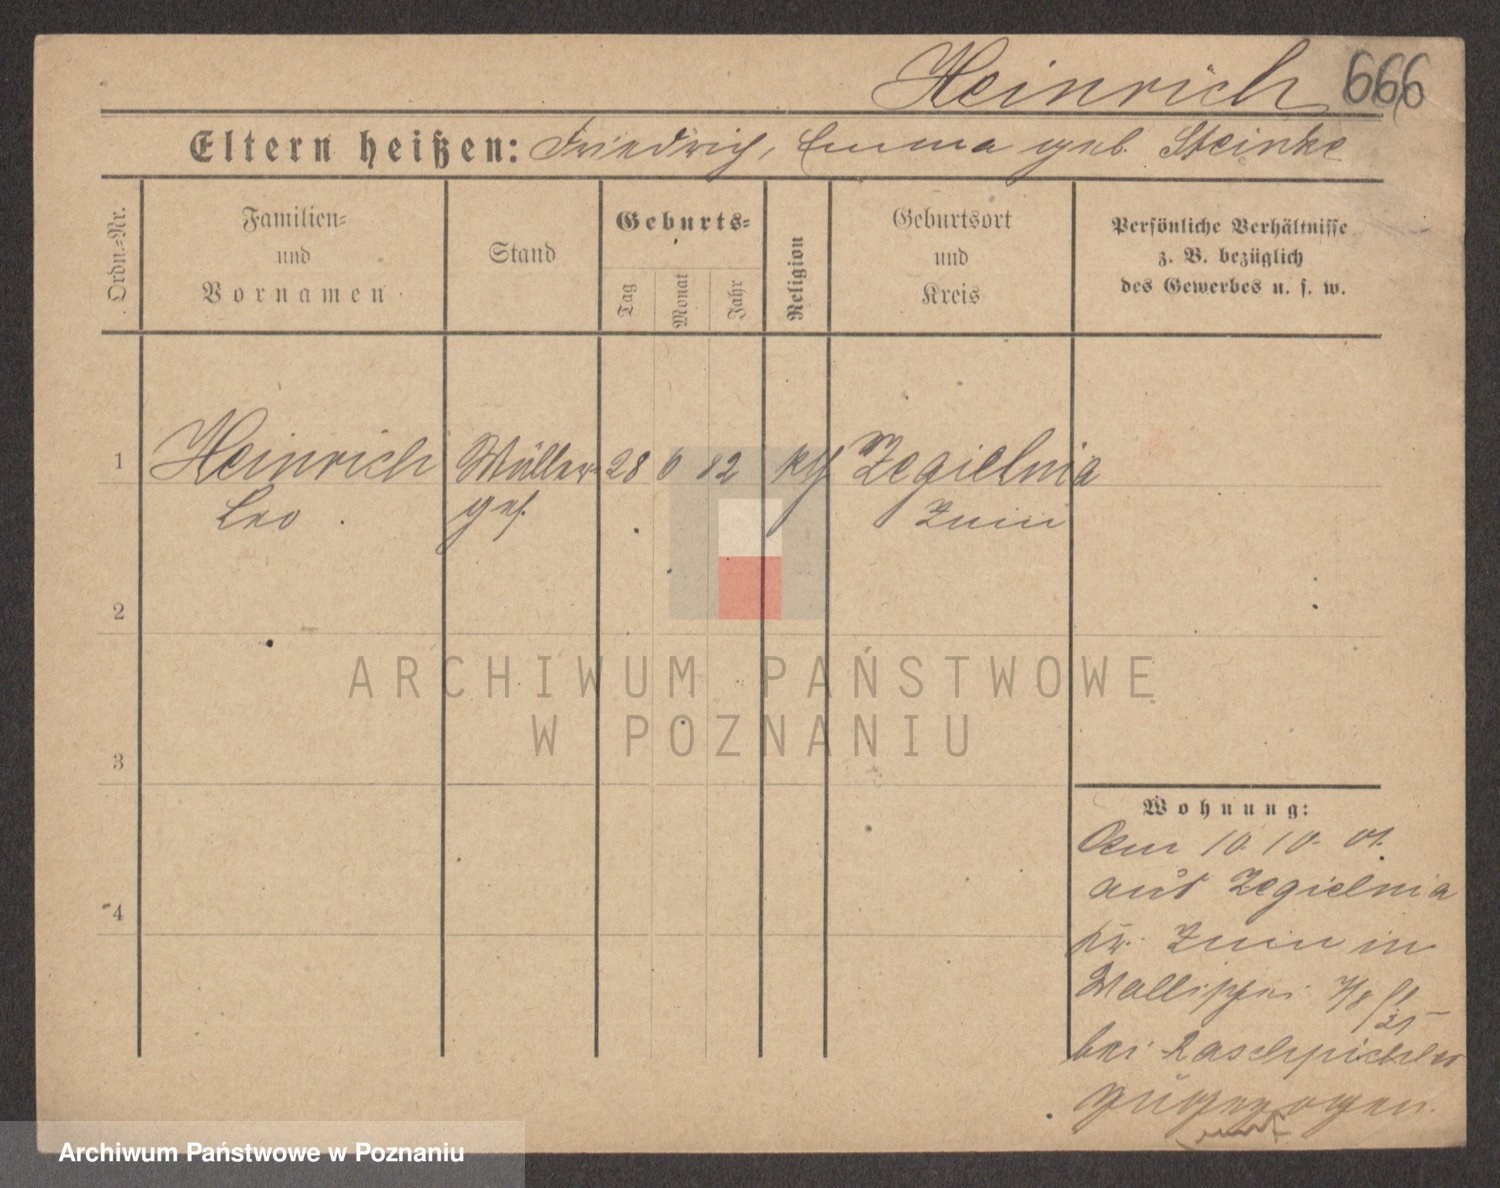 Heinrich 666
Eltern heißen: Friedrich, Emma geb. Steinke
Ordn.-Nr.
Familien-
und
Vornamen
Stand
Geburts-
Tag
Monat
Jahr
Religion
Geburtsort
und
Kreis
Persönliche Verhältnisse
z. B. bezüglich
des Gewerbes u. s. w.
1 Heinrich Müller- 28 6 82 Zegielnia
Leo ges. Znin
2
3
4
Wohnung:
Am 10. 10. 01.
aus Zegielnia
Kr. Znin in
Wallischei 7/8
bei
zugezogen.
ARCHIWUM PAŃSTWOWE
W POZNANIU
Archiwum Państwowe w Poznaniu